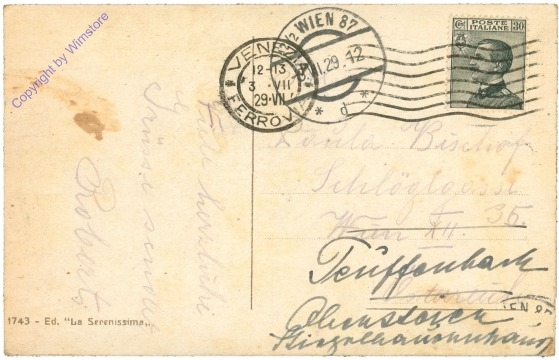 Copyright by Wimstore
VENEZIA
12-13
3 VII
29-VII
FERROVIA
12 WIEN 87
VII.29.12
* d *
POSTE ITALIANE
Ct 30
Viele herzliche
Grüsse sendet
Robert
Paula Bischof
Schlöglgasse
35.
Wien XII.
Teuffenbach
Obersteier
1743 - Ed. "La Serenissima„